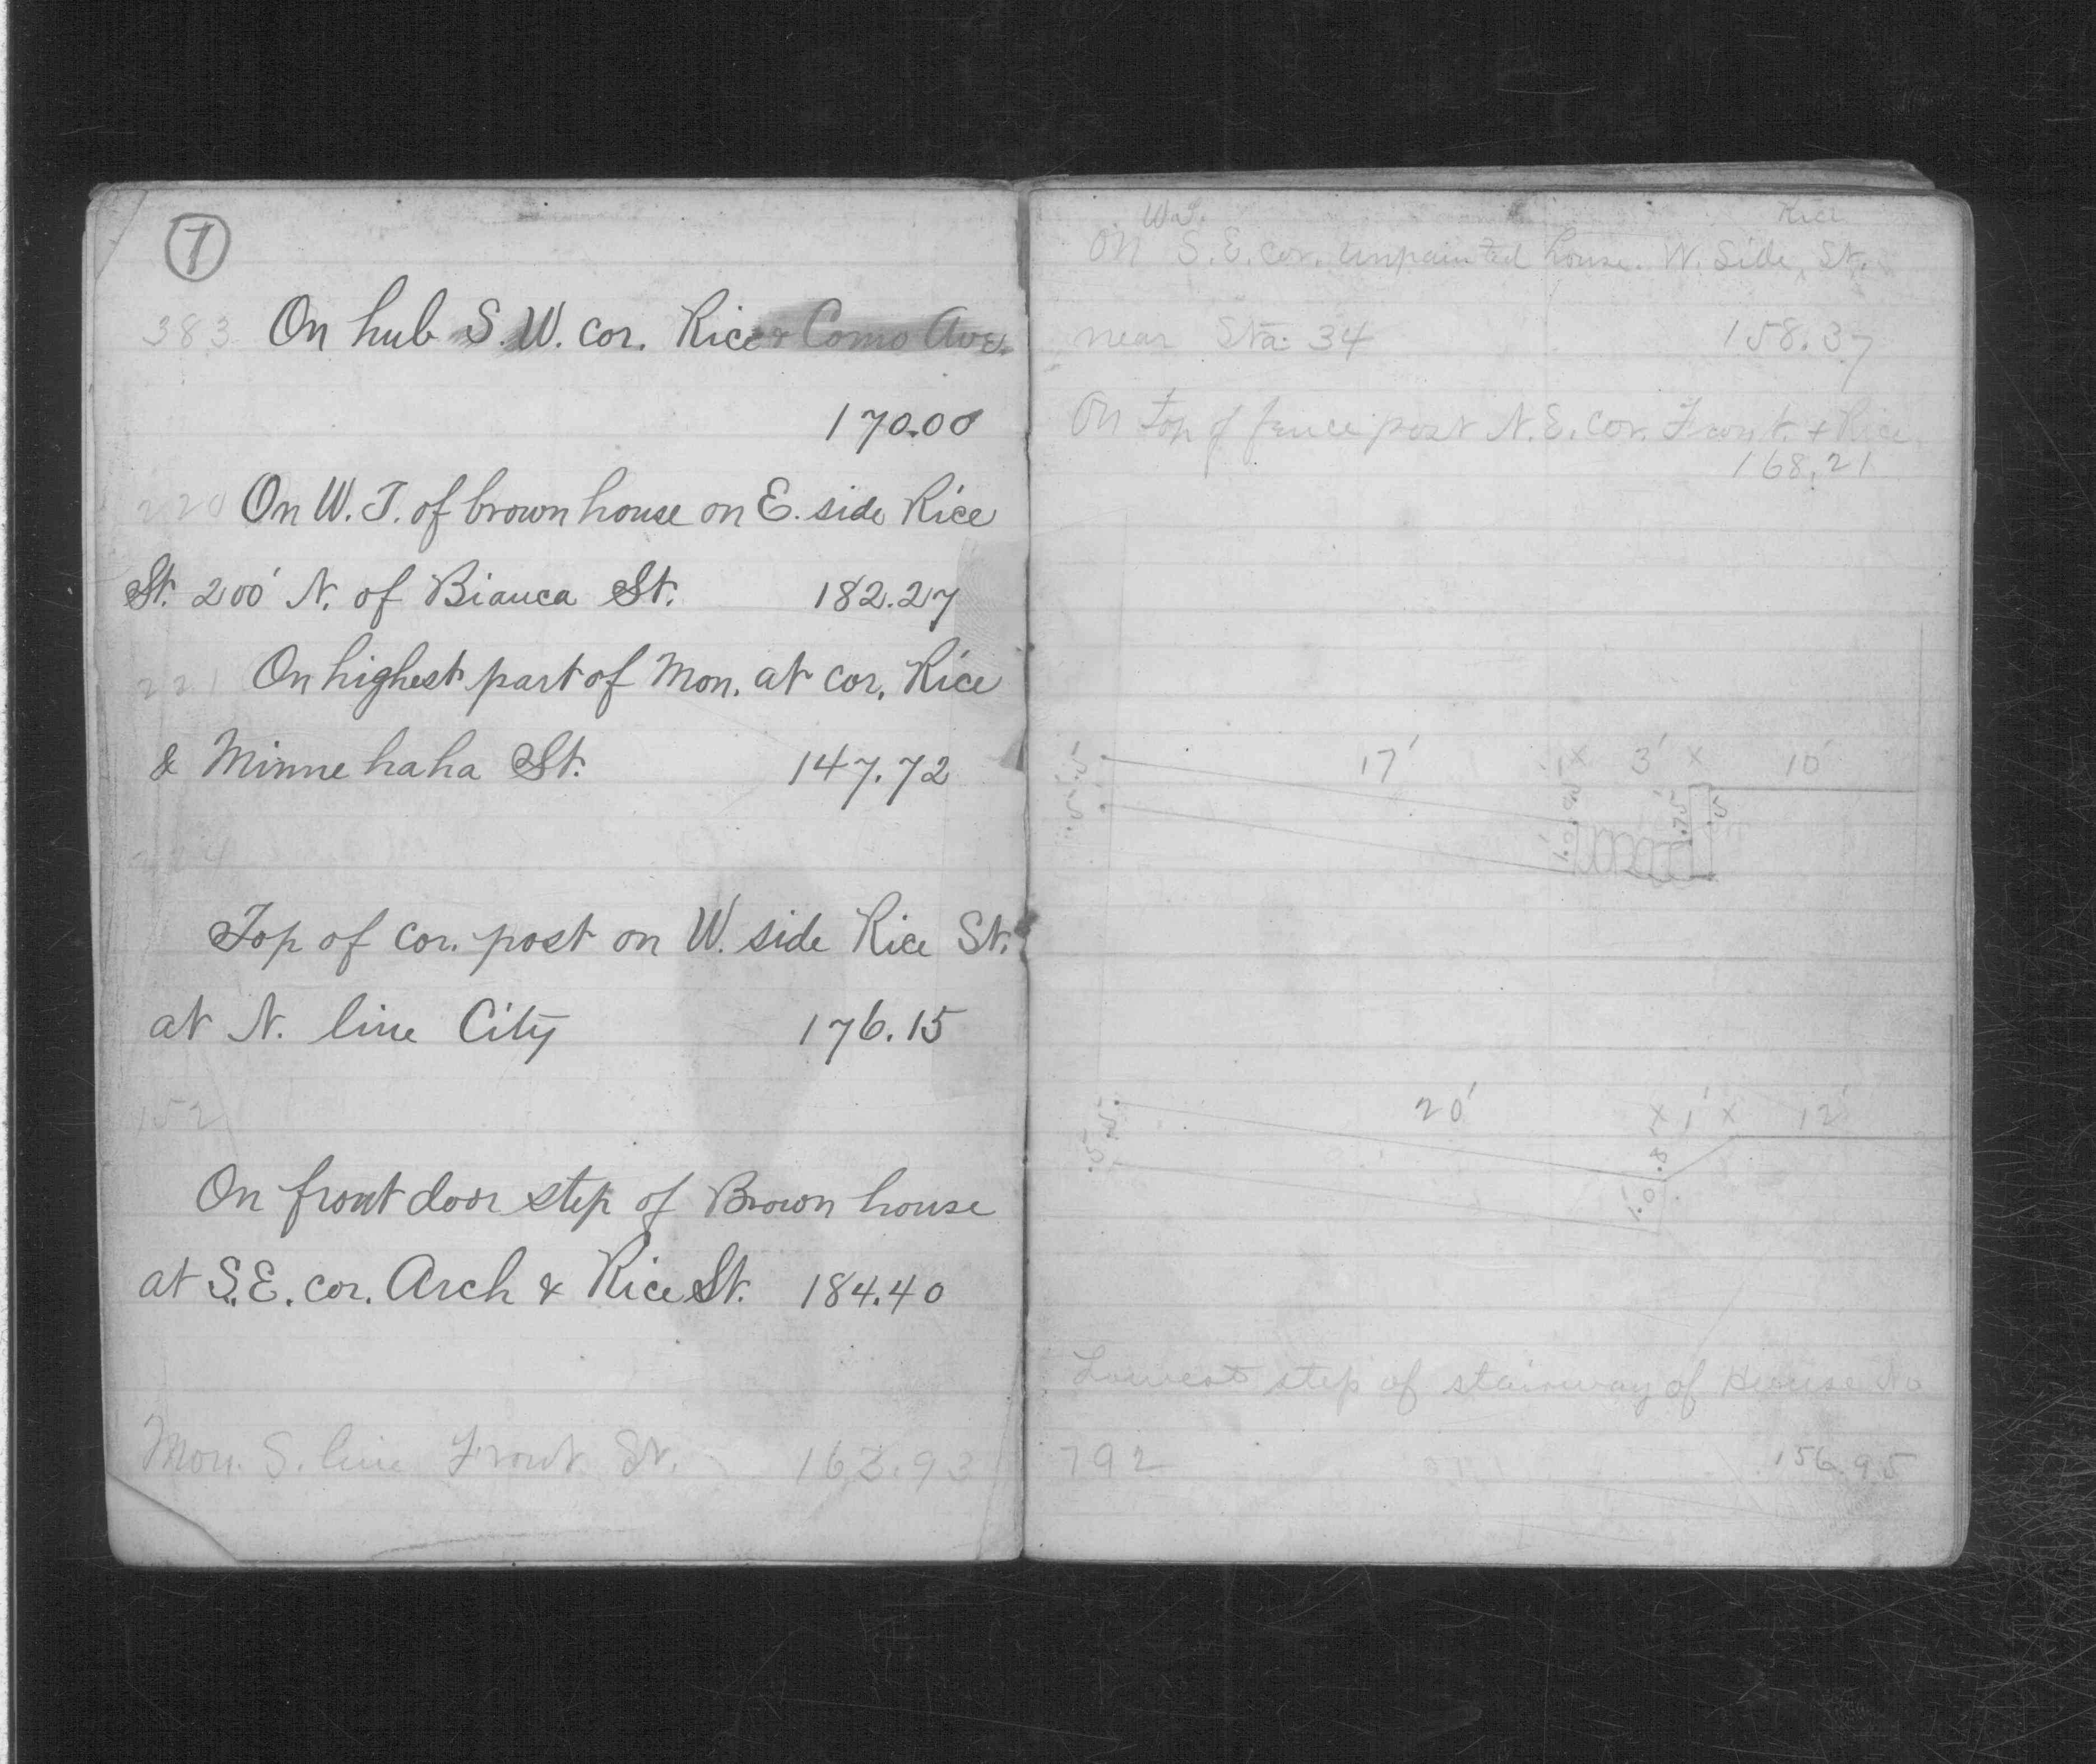 1
383 On hub S. W. cor. Rice & Como Ave.
170.00
220 On W. T. of brown house on E. side Rice
St. 200' N. of Bianca St. 182.27
221 On highest part of Mon. at cor. Rice
& Minnehaha St. 147.72
Top of cor. post on W. side Rice St.
at N. line City 176.15
152
On front door step of Brown house
at S.E. cor. Arch & Rice St. 184.40
Mon. S. line Front St. 163.93
Rice
On S.E. cor. unpainted house. W. Side, St.
near Sta. 34 158.37
On top of fence post N.E. cor. Front. + Rice
168.21
17' x 3' x 10'
1.0 .75 .5
20' x 1' x 12'
.5 .8
1.0
Lowest step of stairway of House No
792 156.95